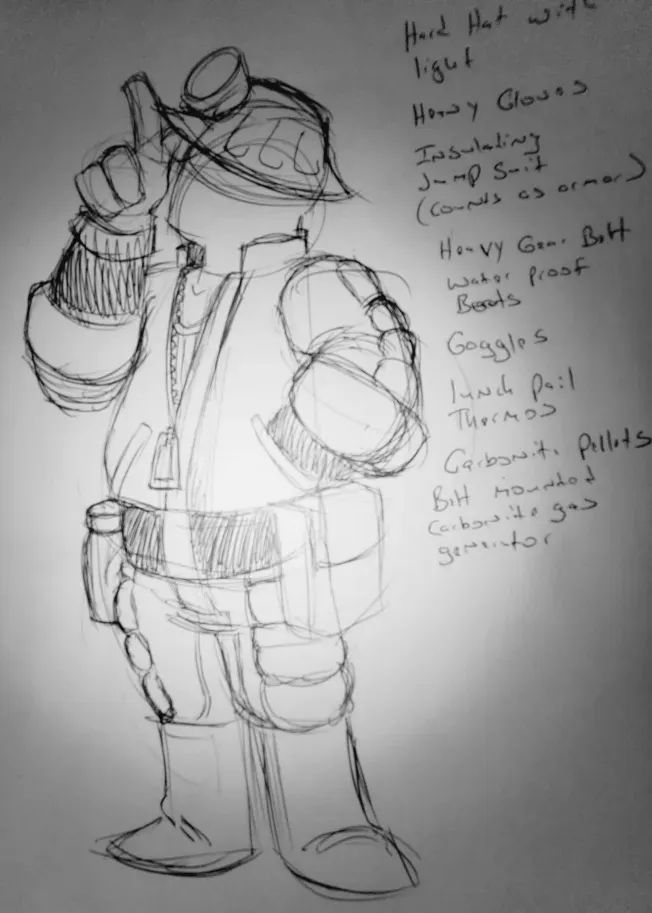 Hard Hat with
light
Heavy Gloves
Insulating
Jump Suit
(counts as armor)
Heavy Gear Belt
Water Proof
Boots
Goggles
lunch pail
Thermos
Carbonite Pellets
Belt mounted
Carbonite gas
generator